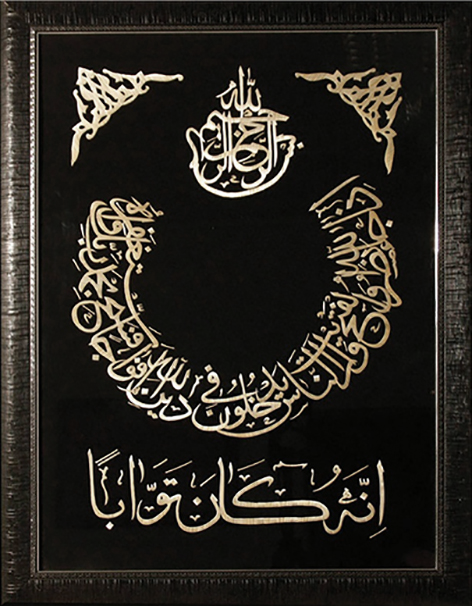 بسم الله الرحمن الرحيم
اذا جاء نصر الله والفتح ورأيت الناس يدخلون في دين الله افواجا فسبح بحمد ربك واستغفره
اِنَّهُ كَانَ تَوَّابًا